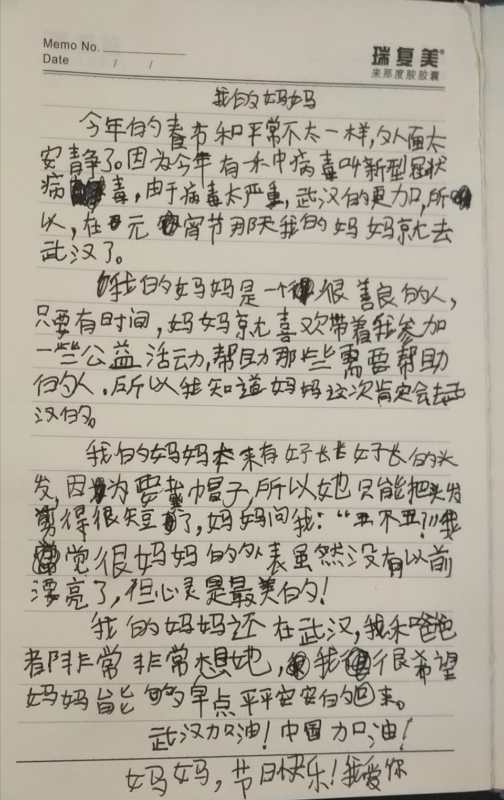 Memo No.
Date / /
瑞复美®
来那度胺胶囊
我的妈妈
今年的春节和平常不太一样,外面太
安静了。因为今年有一种病毒叫新型冠状
病毒,由于病毒太严重,武汉的更加,所
以,在元宵节那天我的妈妈就去
武汉了。
我的妈妈是一个很善良的人,
只要有时间,妈妈就喜欢带着我参加
一些公益活动,帮助那些需要帮助
的人.所以我知道妈妈这次肯定会去武
汉的。
我的妈妈本来有好长好长的头
发,因为要戴帽子,所以她只能把头发
剪得很短了,妈妈问我:“丑不丑?”我
觉很妈妈的外表虽然没有以前
漂亮了,但心灵是最美的!
我的妈妈还在武汉,我和爸爸
都非常非常想她,我很希望
妈妈能够早点平平安安的回来。
武汉加油!中国加油!
妈妈,节日快乐!我爱你